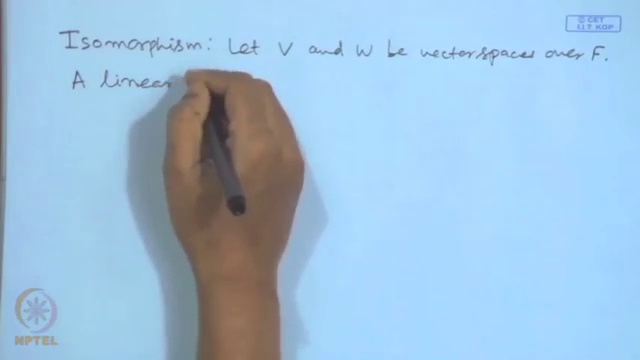 © CET
I.I.T. KGP
Isomorphism: Let V and W be vector spaces over F.
A linear
NPTEL